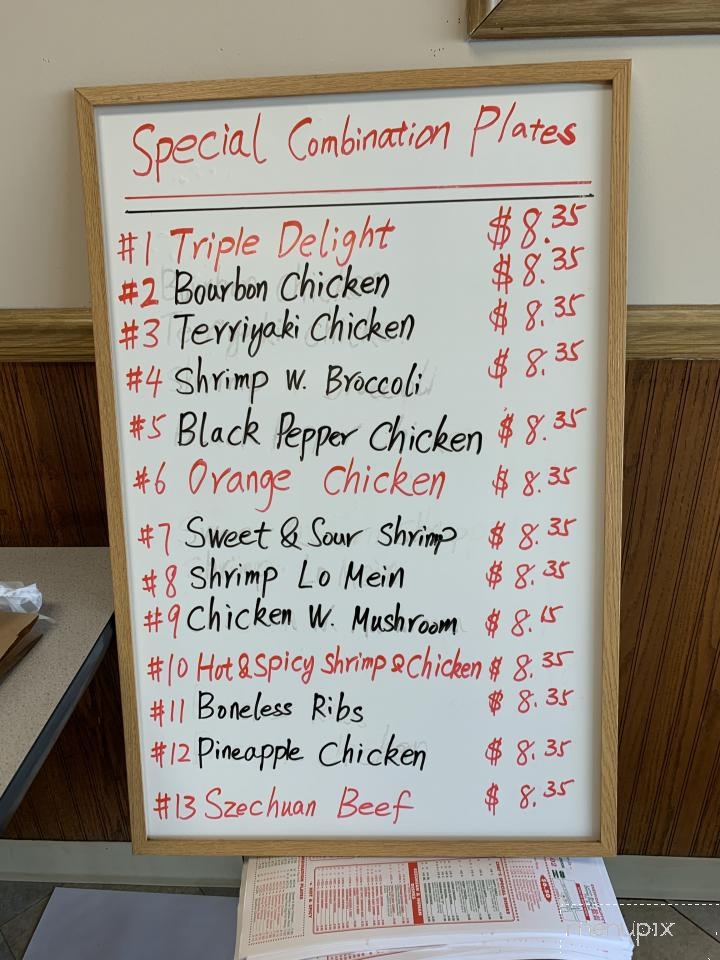 Special Combination Plates
#1 Triple Delight $8.35
#2 Bourbon Chicken $8.35
#3 Terriyaki Chicken $8.35
#4 Shrimp W. Broccoli $8.35
#5 Black Pepper Chicken $8.35
#6 Orange Chicken $8.35
#7 Sweet & Sour Shrimp $8.35
#8 Shrimp Lo Mein $8.35
#9 Chicken W. Mushroom $8.15
#10 Hot & Spicy Shrimp & Chicken $8.35
#11 Boneless Ribs $8.35
#12 Pineapple Chicken $8.35
#13 Szechuan Beef $8.35
menupix